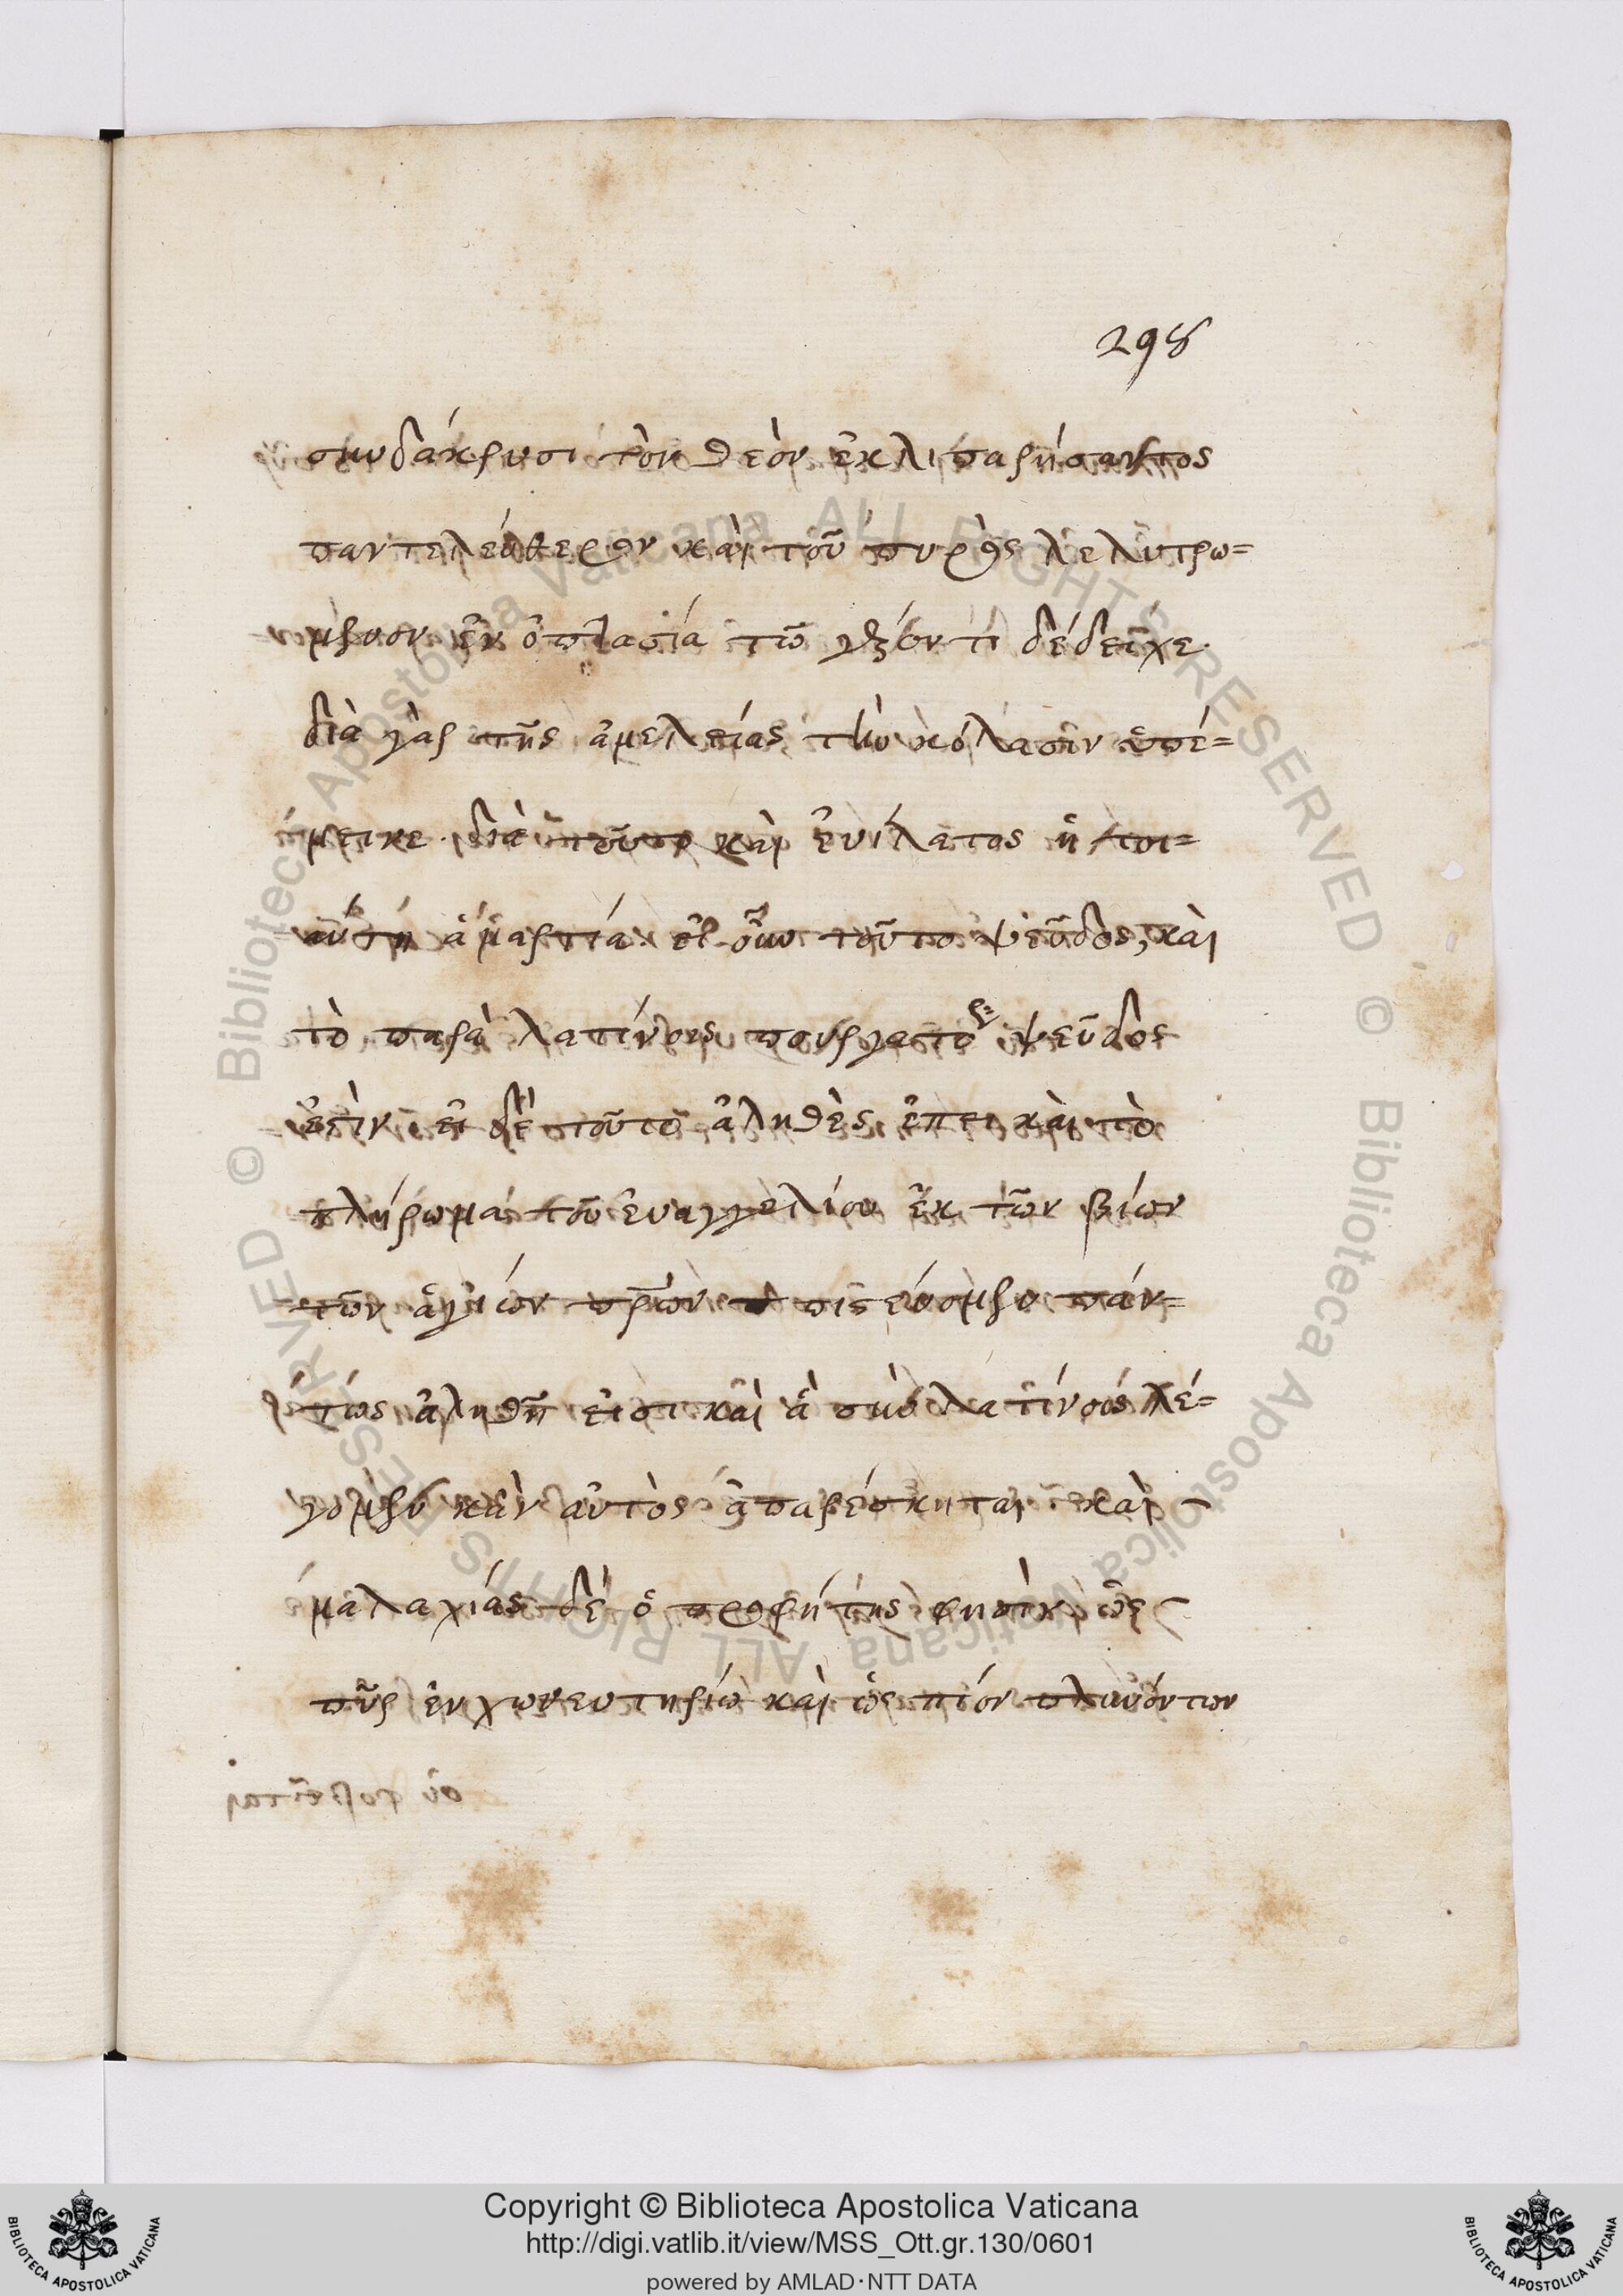 298
σὺν δάκρυσι τὸν θεὸν ἐκλιπαρήσαντος
παντελεύθερον καὶ τοῦ πυρὸς λελυτρω=
μένον ἐν ὀπτασία τῶ γέροντι δέδειχε.
διὰ γὰρ τῆς ἀμελείας τὴν κόλασιν ὑπέ=
μεινε. διὰ τοῦτο καὶ ἐνίλατος ἡ τοι=
αύτη ἁμαρτία. εἰ οὖν τοῦτο ψεῦδος, καὶ
τὸ παρὰ λατίνοις πουργατό ψεῦδος
ἐστίν. εἰ δὲ τοῦτο ἀληθὲς ἐπεὶ καὶ τὸ
πλήρωμα τοῦ εὐαγγελίου ἐκ τῶν βίων
τῶν ἁγίων πρων πιστεύομεν πάν=
τως ἀληθῆ εἰσι καὶ ἃ σὺν λατίνοις λέ=
γομεν κἂν αὐτὸς ἀπαρέσκηται καὶ
μαλαχίας δὲ ὁ προφήτης φησὶν ὡς
πῦρ ἐν χωνευτηρίω καὶ ὡς πόον πλυνόντων
Copyright © Biblioteca Apostolica Vaticana
http://digi.vatlib.it/view/MSS_Ott.gr.130/0601
powered by AMLAD·NTT DATA
BIBLIOTECA APOSTOLICA VATICANA
BIBLIOTECA APOSTOLICA VATICANA
© Biblioteca Apostolica Vaticana ALL RIGHTS RESERVED © Biblioteca Apostolica Vaticana ALL RIGHTS RESERVED